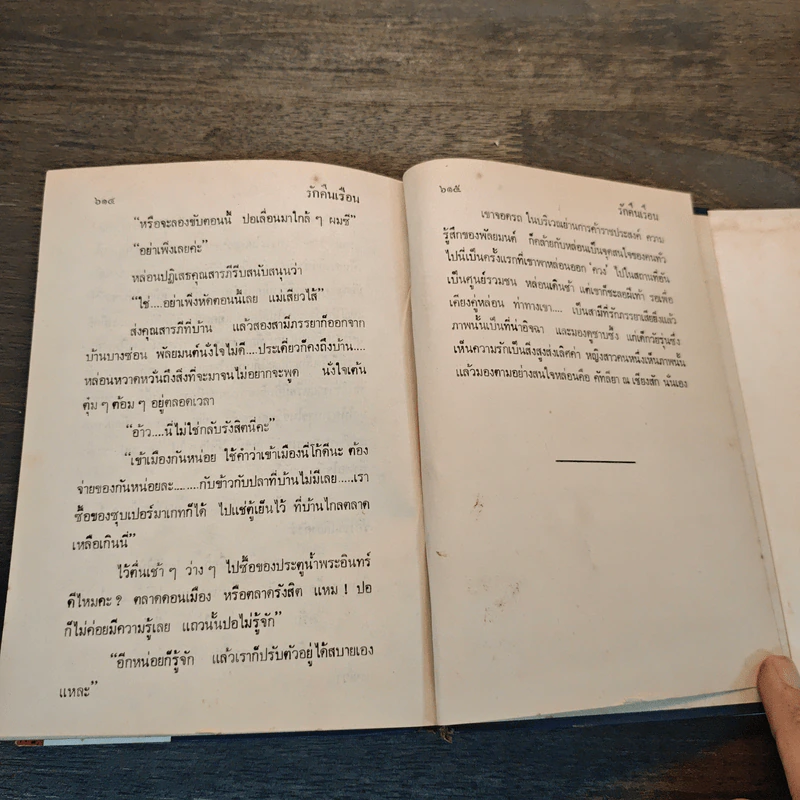 ๖๑๔
รักคืนเรือน
“หรือจะลองขับตอนนี้ ปอเลื่อนมาใกล้ ๆ ผมซี”
“อย่าเพิ่งเลยค่ะ”
หล่อนปฏิเสธคุณสารภีรีบสนับสนุนว่า
“ใช่....อย่าเพิ่งหัดตอนนี้เลย แม่เสียวไส้”
ส่งคุณสารภีที่บ้าน แล้วสองสามีภรรยาก็ออกจาก
บ้านบางซ่อน พัลยมนต์นั่งใจไม่ดี....ประเดี๋ยวก็คงถึงบ้าน....
หล่อนหวาดหวั่นถึงสิ่งที่จะมาจนไม่อยากจะพูด นั่งใจเต้น
ตุ๋ม ๆ ต้อม ๆ อยู่ตลอดเวลา
“อ้าว....นี่ไม่ใช่กลับรังสิตนี่คะ”
“เข้าเมืองกันหน่อย ใช้คำว่าเข้าเมืองนี่โก้ดีนะ ต้อง
จ่ายของกันหน่อยละ........กับข้าวกับปลาที่บ้านไม่มีเลย.....เรา
ซื้อของซุบเปอร์มาเกทก็ได้ ไปแช่ตู้เย็นไว้ ที่บ้านไกลตลาด
เหลือเกินนี่”
ไว้ตื่นเช้า ๆ ว่าง ๆ ไปซื้อของประตูน้ำพระอินทร์
ดีไหมคะ ? ตลาดดอนเมือง หรือตลาดรังสิต แหม ! ปอ
ก็ไม่ค่อยมีความรู้เลย แถวนั้นปอไม่รู้จัก”
“อีกหน่อยก็รู้จัก แล้วเราก็ปรับตัวอยู่ได้สบายเอง
แหละ”
๖๑๕
รักคืนเรือน
เขาจอดรถ ในบริเวณย่านการค้าราชประสงค์ ความ
รู้สึกของพัลยมนต์ ก็คล้ายกับหล่อนเป็นจุดสนใจของคนทั่ว
ไปนี่เป็นครั้งแรกที่เขาพาหล่อนออก ‘ควง’ ไปในสถานที่อัน
เป็นศูนย์รวมชน หล่อนเดินช้า แต่เขาก็ชะลอฝีเท้า รอเพื่อ
เคียงคู่หล่อน ท่าทางเขา.... เป็นสามีที่รักภรรยาเสียยิ่งแล้ว
ภาพนั้นเป็นที่น่าอิจฉา และมองดูซาบซึ้ง แก่เด็กวัยรุ่นซึ่ง
เห็นความรักเป็นสิ่งสูงส่งเลิศค่า หญิงสาวคนหนึ่งเห็นภาพนั้น
แล้วมองตามอย่างสนใจหล่อนคือ คัทลียา ณ เชียงสัก นั่นเอง